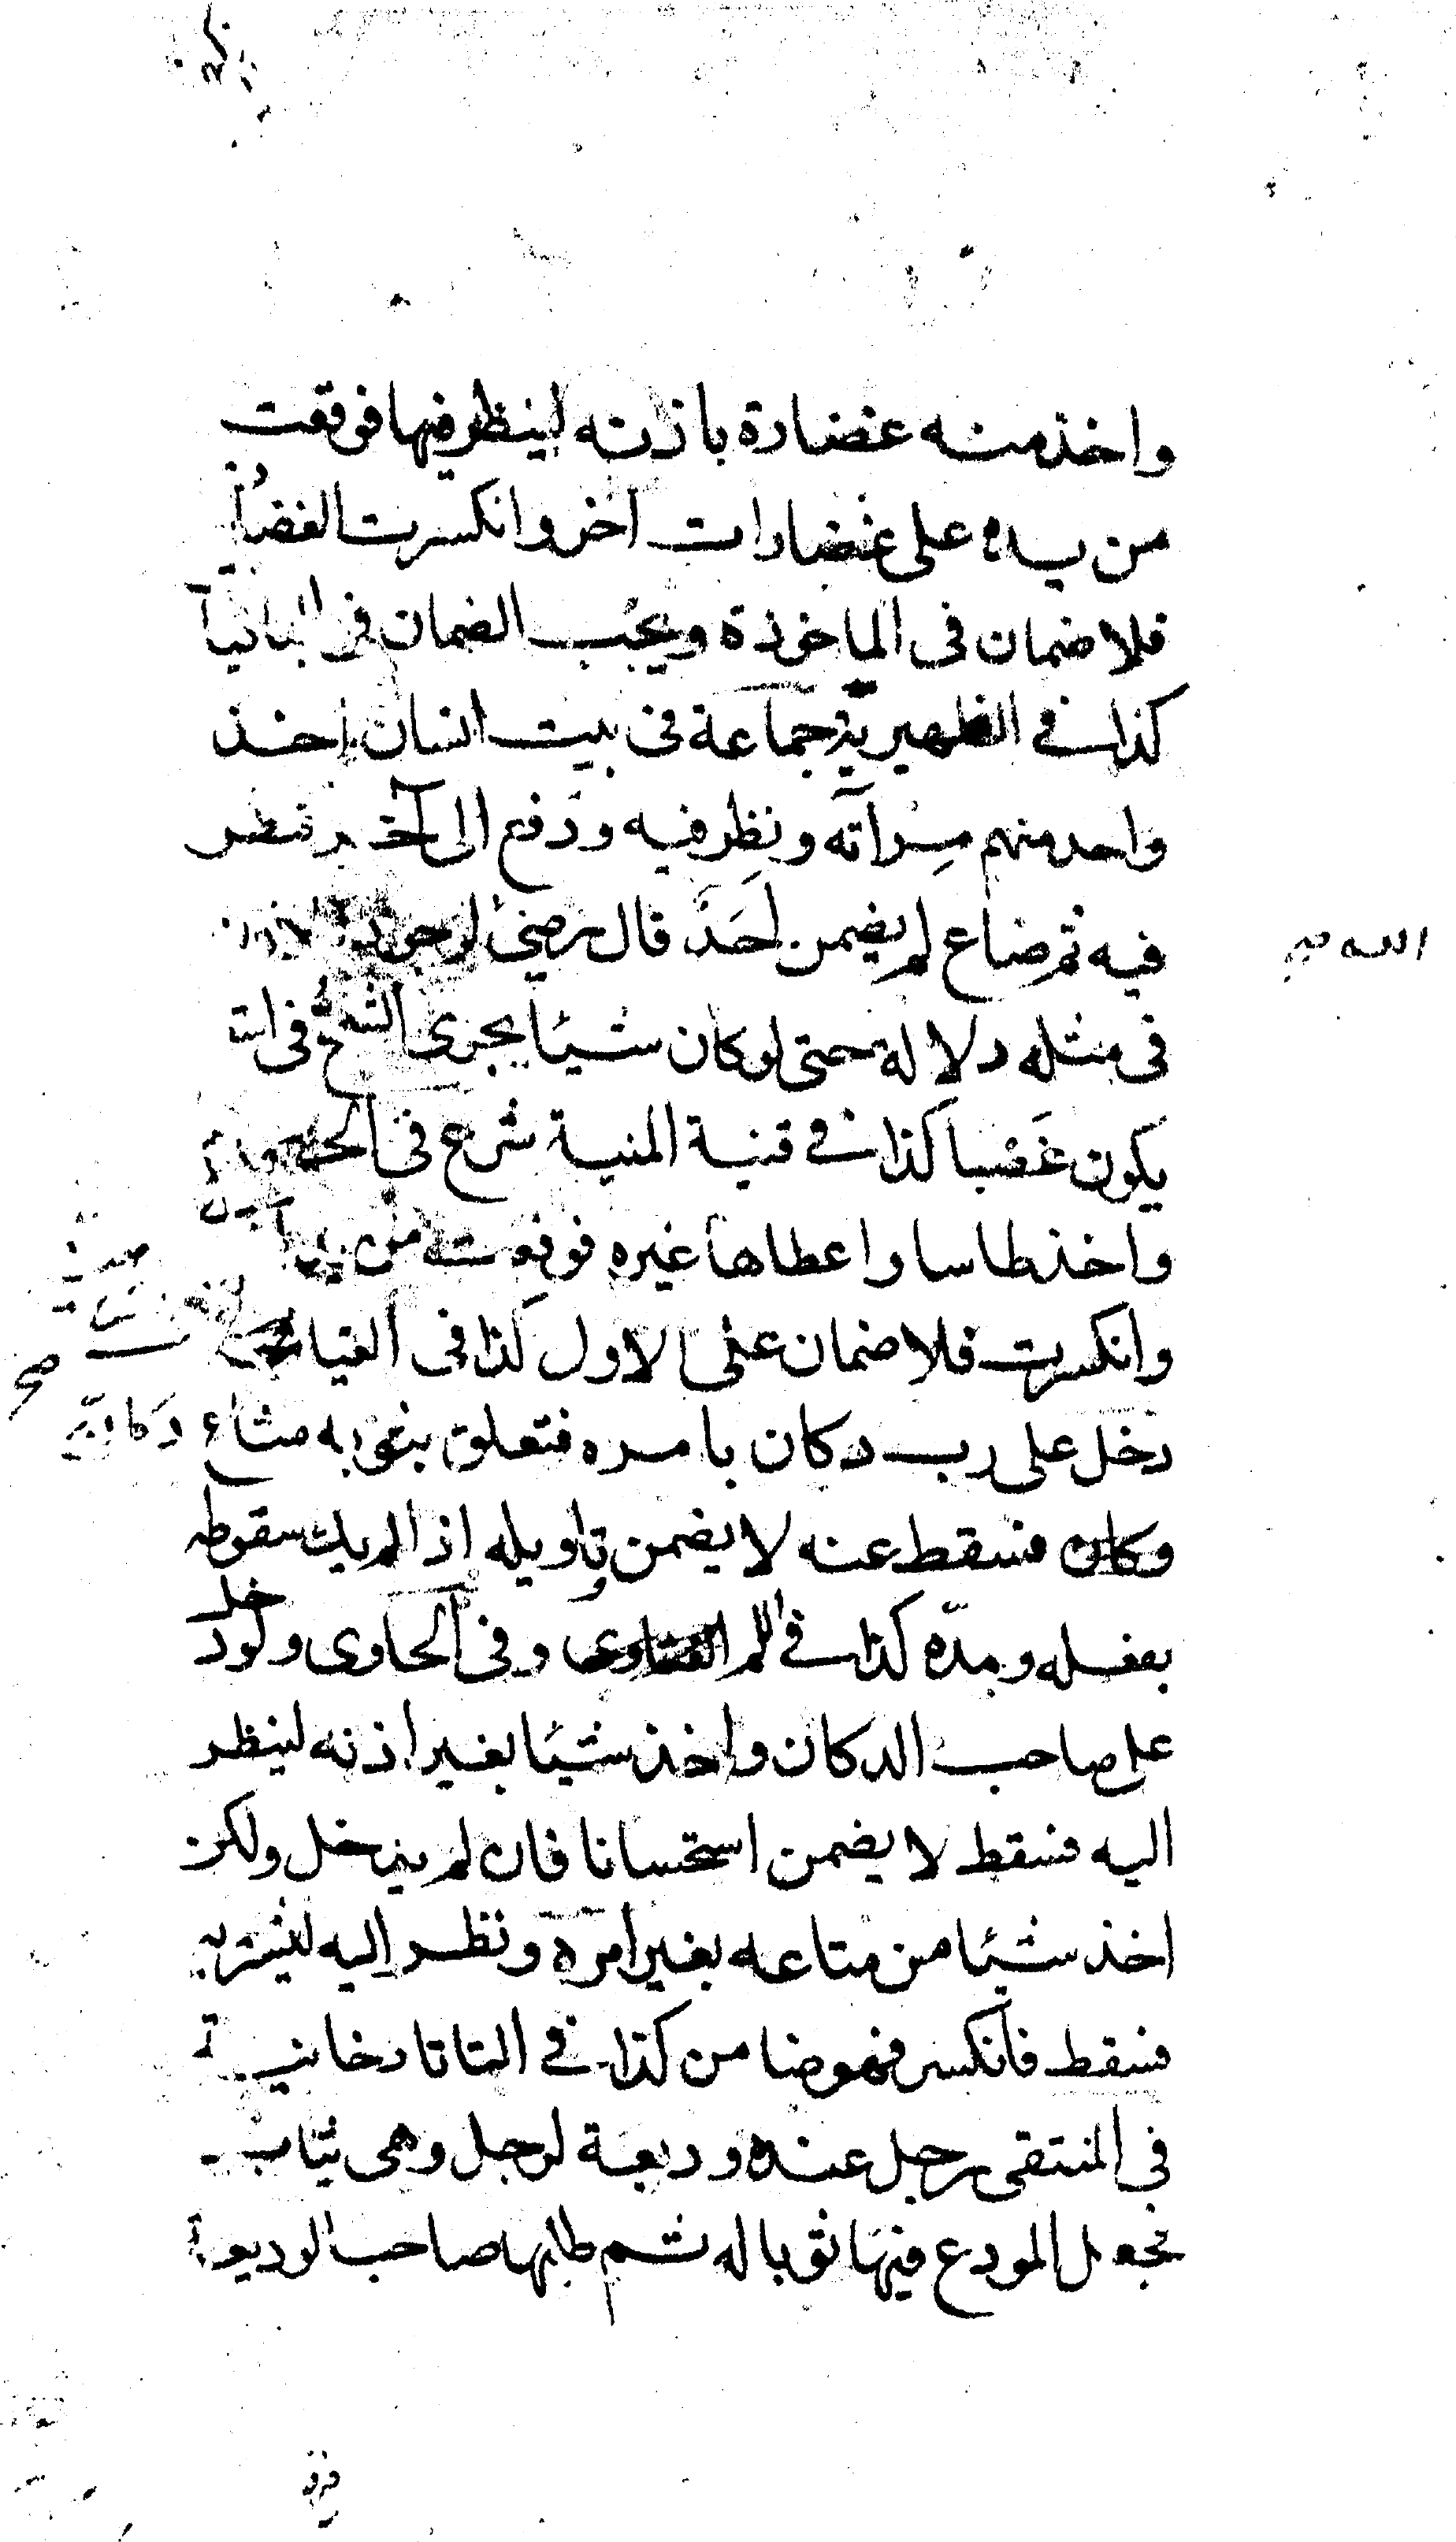 واخذ منه غضارة باذنه لينظر فيها فوقعت
من يده على غضارات اخر وانكسرت الغضارات
فلا ضمان فى الماخوذة ويجب الضمان فى الباقيات
كذا فى الظهيرية جماعة فى بيت انسان اخذ
واحد منهم مرآته ونظر فيه ودفع الى آخر فنظر
فيه ثم ضاع لم يضمن احد قال رضى لوجود الاذن
فى مثله دلالة حتى لو كان شيئا يجرى الشح فى
يكون غصبا كذا فى قنية المنية شرع فى الحمام
واخذ طاسا واعطاها غيره فوقعت من يد
وانكسرت فلا ضمان على الاول كذا فى الغياثية
دخل على رب دكان بامره فتعلق بثوبه متاع
وكان فسقط عنه لا يضمن تاويله اذا لم يك سقوطه
بفعله ومده كذا فى الفتاوى وفى الحاوى ولو دخل
على صاحب الدكان واخذ شيئا بغير اذنه لينظر
اليه فسقط لا يضمن استحسانا فان لم يدخل ولكن
اخذ شيئا من متاعه بغير امره ونظر اليه ليشتريه
فسقط فانكسر فهو ضامن كذا فى التاتارخانية
فى المنتقى رجل عنده وديعة لرجل وهى ثياب
فجعل المودع فيها ثوبا له ثم طلبها صاحب الوديعة
الله
صح
دكانه